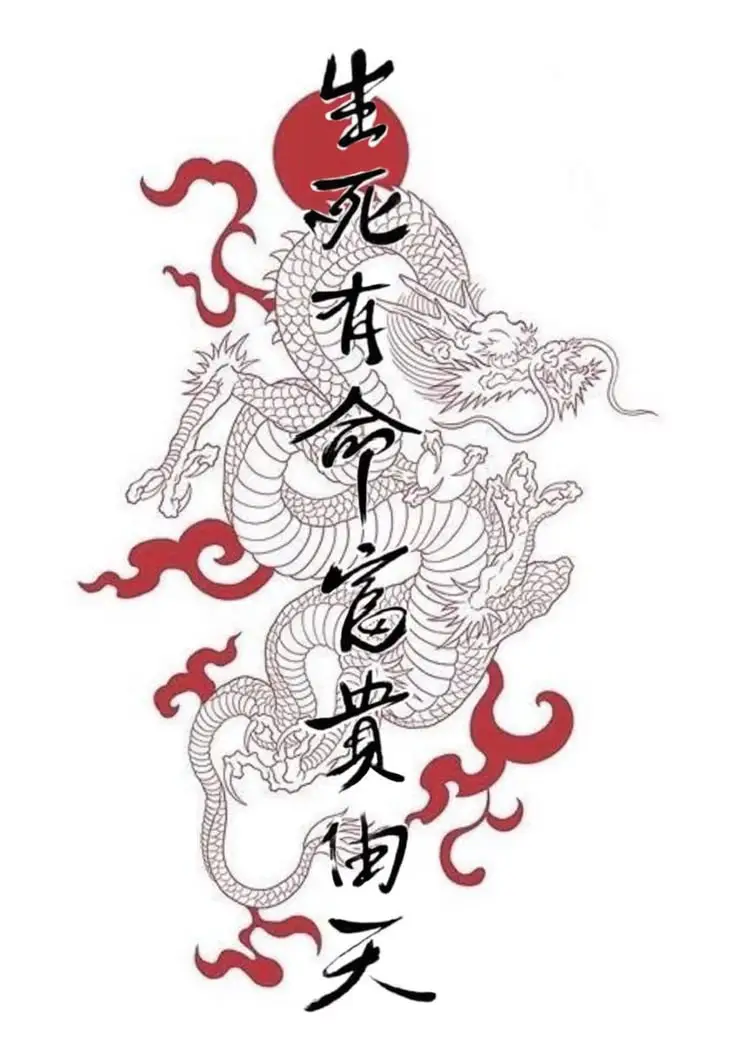 生死有命富貴由天